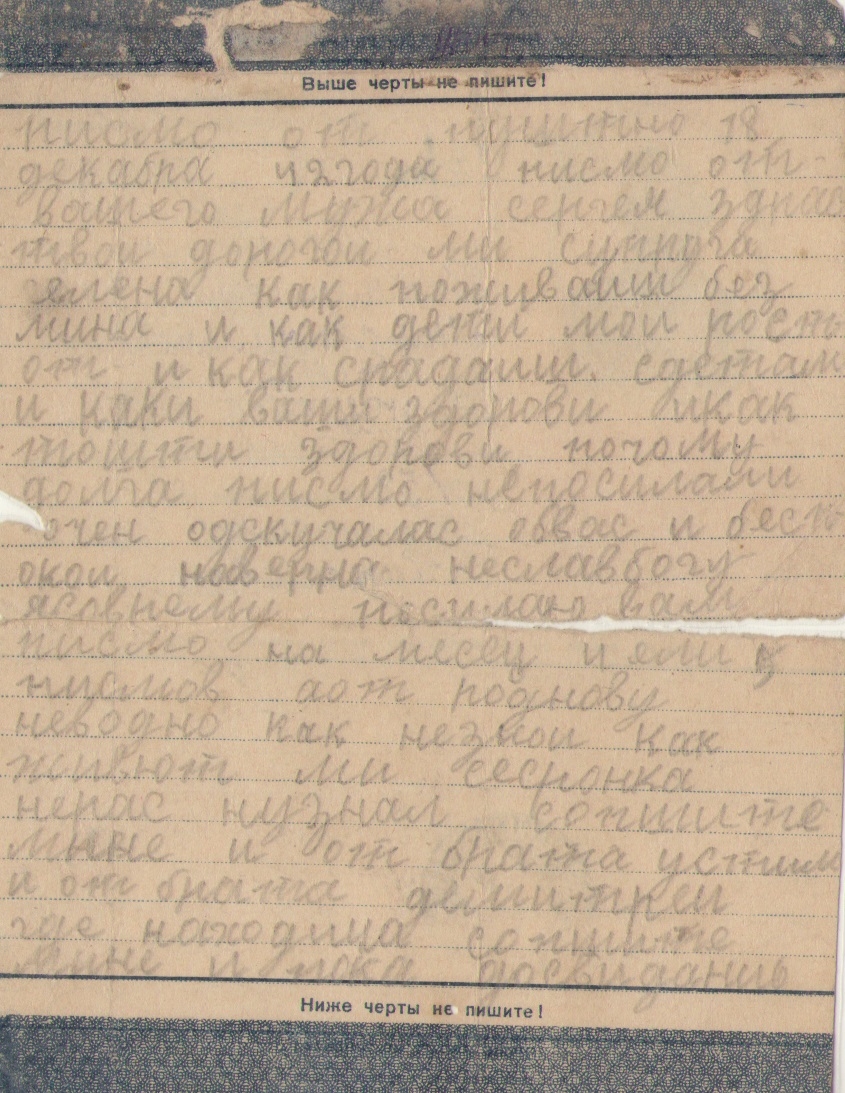 Выше черты не пишите!
писмо от пущтно 18
декабра 42 года писмо от-
вашего мужа сергея здрас
твои дорогои ми супруга
елена как поживаиш без
мина и как дети мои рост-
от и как спадаиш. сдетам
и каки ваши здорови икак
здорови почому
долга писмо непосилаеш
очен одскучалас обвас и бесп-
окои наверна неславбогу
посилаю вам
писмо на месец и ели 5
писмов аот роднову
неводно как незнои как
живют ми сеспонка
неразс нузнал сопшите
мине и от брата устим
и от брата демитреи
где находица сопшите
мине и пока досвидания
Ниже черты не пишите!